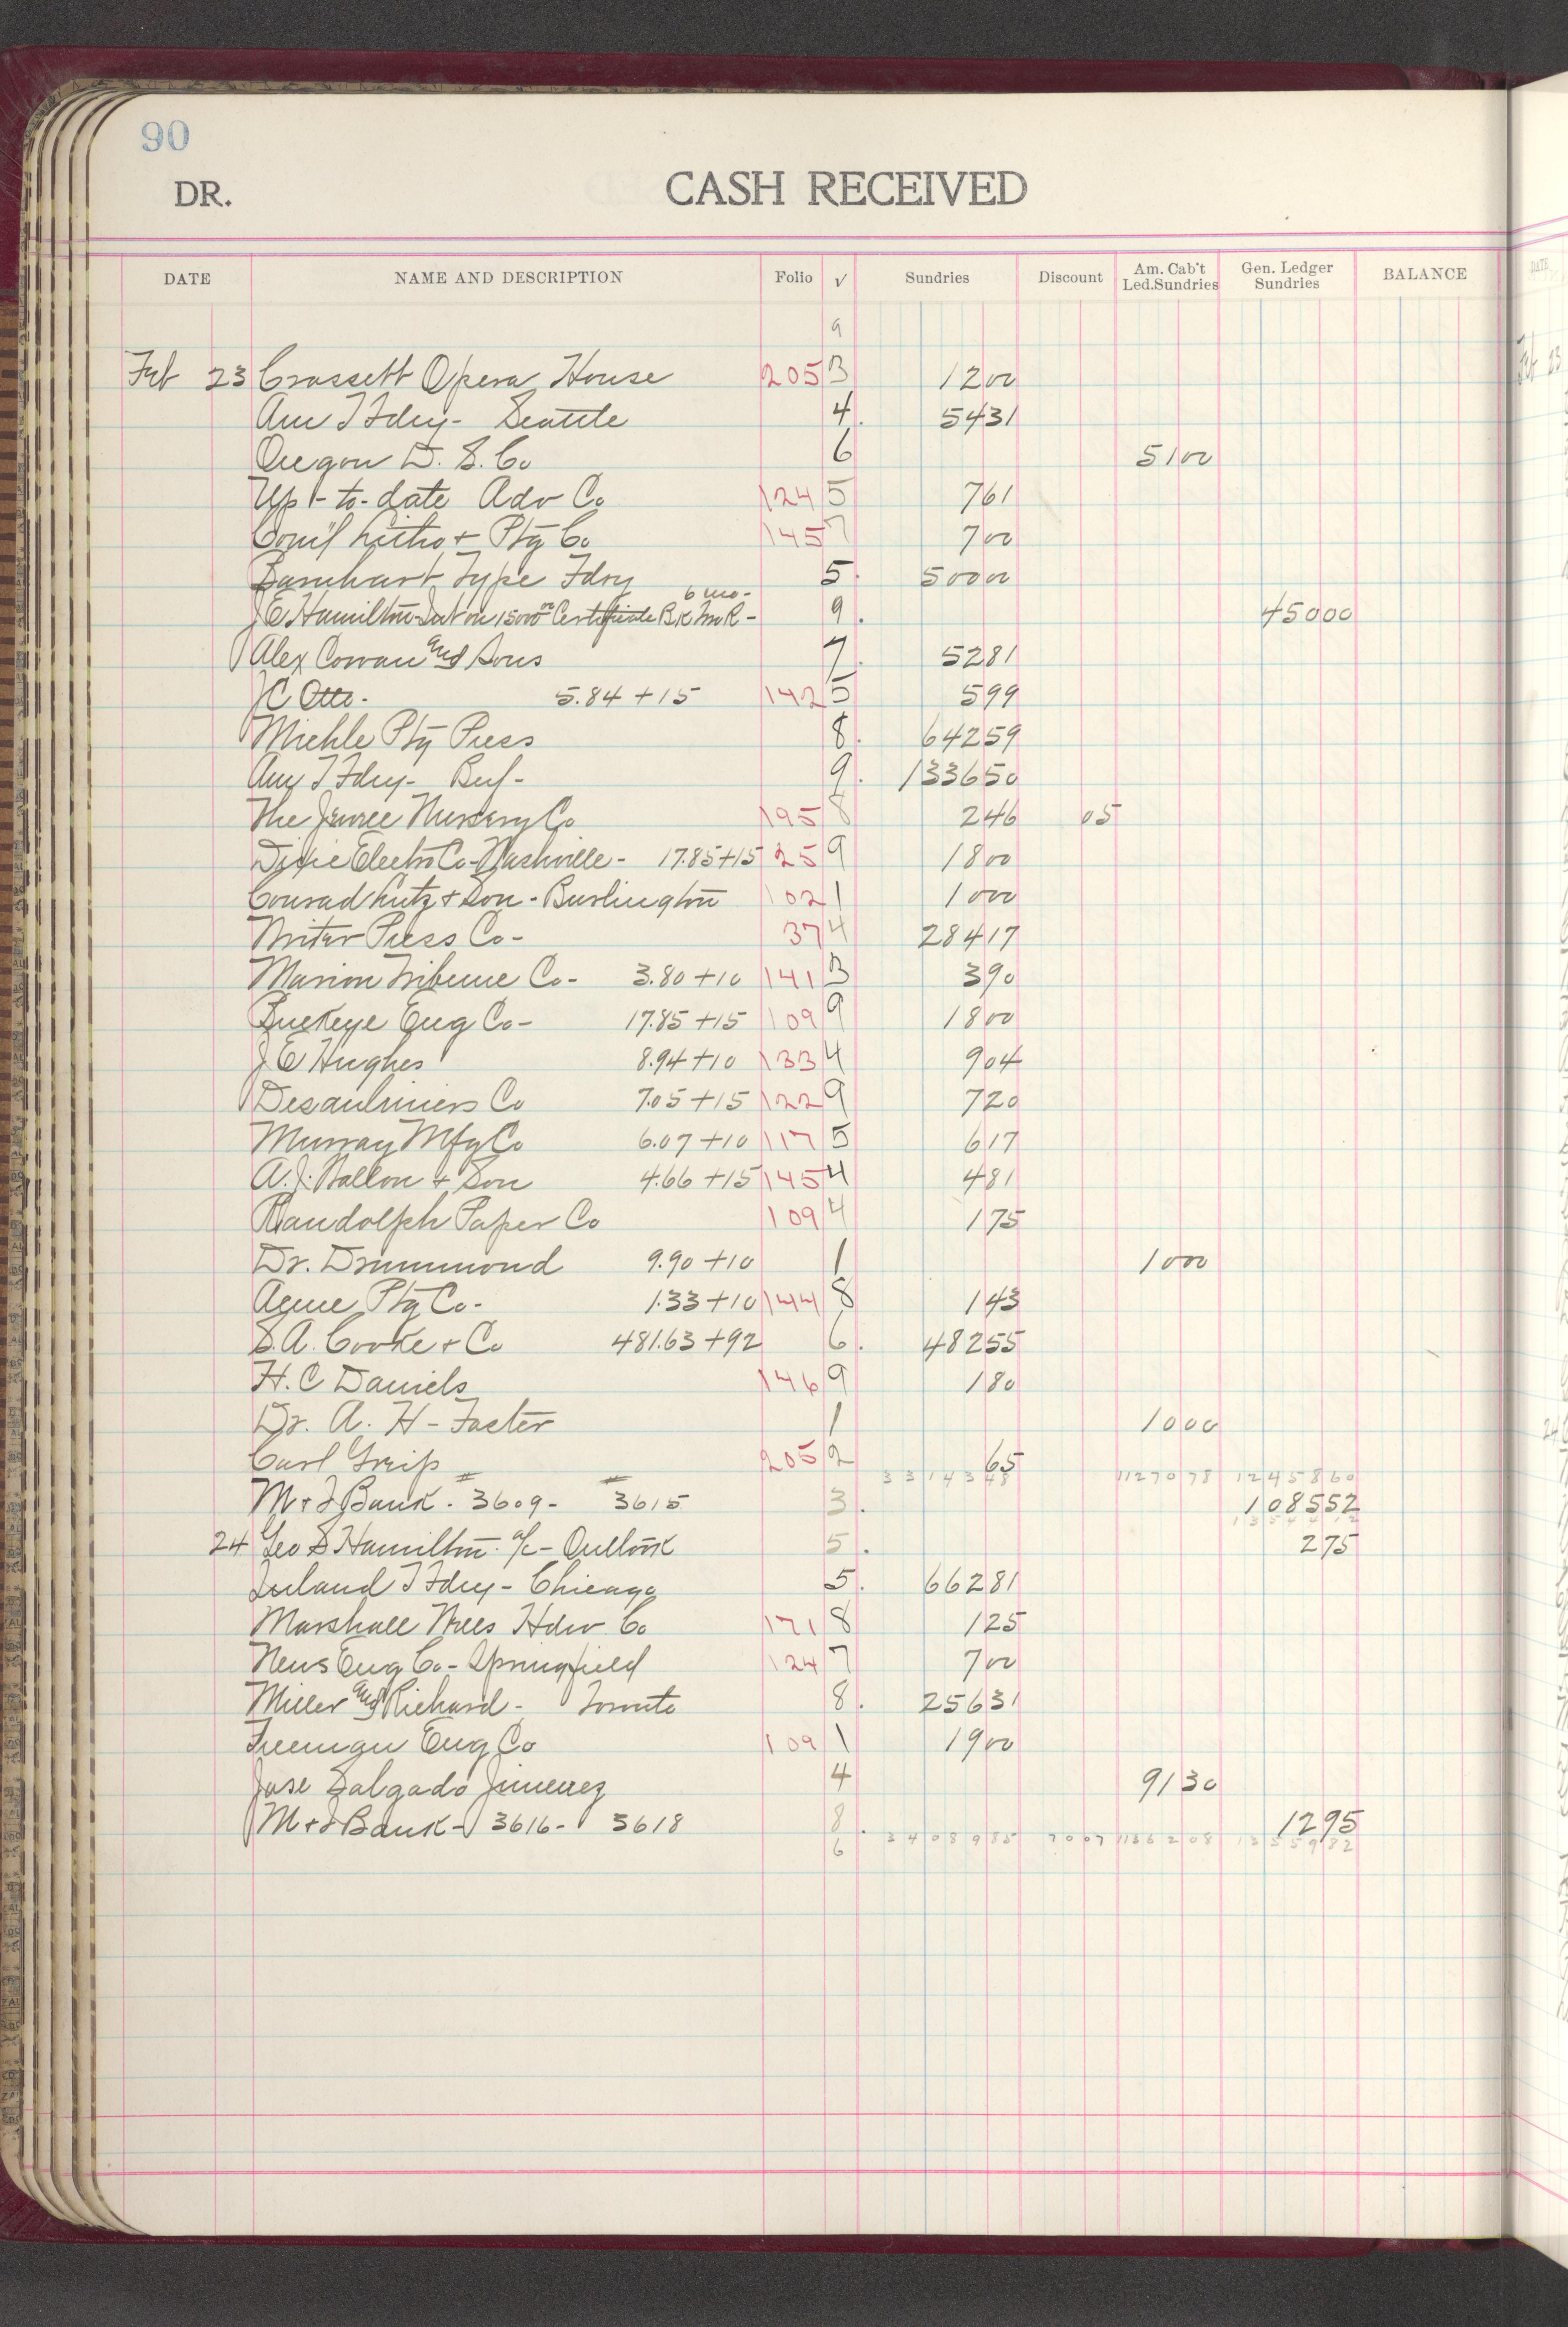 90
DR. CASH RECEIVED
DATE NAME AND DESCRIPTION Folio √ Sundries Discount Am. Cab't Led.Sundries Gen. Ledger Sundries BALANCE
9
Feb 23 Crossett Opera House 205 3 1200
Am T Fdry - Seattle 4. 5431
Oregon D. S. Co 6 5100
Up-to-date Adv Co 124 5 761
Con'l Litho + Ptg Co 145 7 700
Barnhart Type Fdry 5. 50000
J E Hamilton - Int on 15000 00 Certificate Bk 6 mo - 9. 45000
Alex Cowan and Sons 7. 5281
J C Otto - 5.84 + 15 142 5 599
Miehle Ptg Press 8. 64259
Am T Fdry - Buf - 9. 133650
The Jewell Nursery Co 195 8 246 05
Dixie Electro Co - Nashville - 17.85 + 15 25 9 1800
Conrad Lutz + Son - Burlington 102 1 1000
Niter Press Co - 37 4 28417
Marion Tribune Co - 3.80 + 10 141 3 390
Buckeye Eng Co - 17.85 + 15 109 9 1800
J E Hughes 8.94 + 10 133 4 904
Desaulniers Co 7.05 + 15 122 9 720
Murray Mfg Co 6.07 + 10 117 5 617
A. J. + Son 4.66 + 15 145 4 481
Randolph Paper Co 109 4 175
Dr. Drummond 9.90 + 10 1 1000
Acme Ptg Co - 1.33 + 10 144 8 143
S. A. Cooke + Co 481.63 + 92 6. 48255
H. C Daniels 146 9 180
Dr. A. H - Foster 1 1000
Carl Greip 205 2 65
3314348 1127078 1245860
M + I Bank - # 3609 - # 3615 3. 108552
24 Geo S Hamilton a/c - Outlook 5. 275
Inland T Fdry - Chicago 5. 66281
Marshall Wells Hdw Co 171 8 125
News Eng Co - Springfield 124 7 700
Miller and Richard - Toronto 8. 25631
Freeman Eng Co 109 1 1900
Jose Salgado Jimenez 4 9130
M + I Bank - 3616 - 3618 8. 1295
6 3408985 7007 1136208 1355982